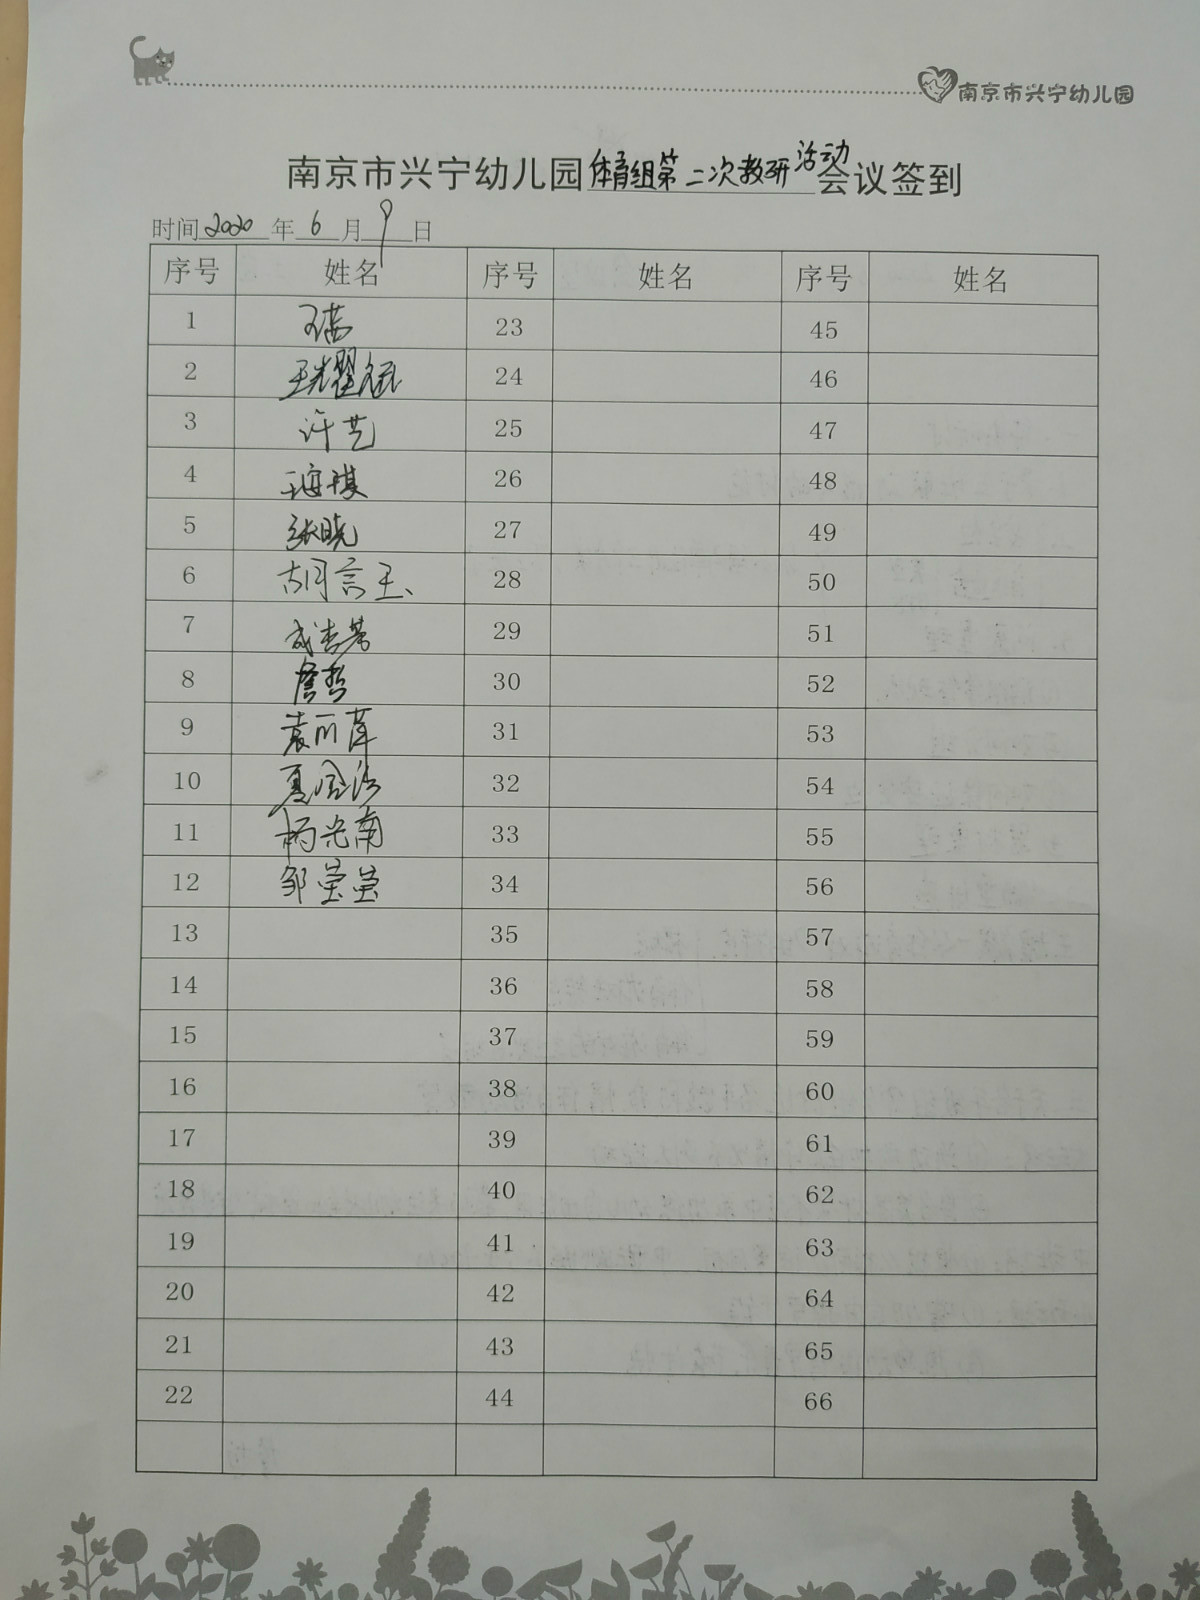 南京市兴宁幼儿园
南京市兴宁幼儿园体育组第二次教研活动会议签到
时间2020年6月9日
序号 姓名 序号 姓名 序号 姓名
1 23 45
2 24 46
3 许艺 25 47
4 26 48
5 张晓 27 49
6 28 50
7 29 51
8 30 52
9 31 53
10 32 54
11 杨光南 33 55
12 邹景景 34 56
13 35 57
14 36 58
15 37 59
16 38 60
17 39 61
18 40 62
19 41 63
20 42 64
21 43 65
22 44 66